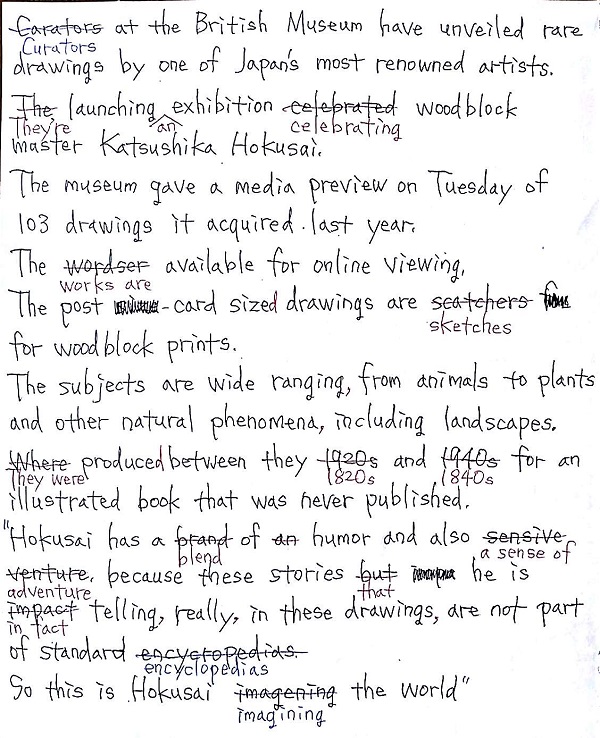 Carators at the British Museum have unveiled rare
Curators
drawings by one of Japan's most renowned artists.
The launching exhibition celebrated woodblock
They're an celebrating
master Katsushika Hokusai.
The museum gave a media preview on Tuesday of
103 drawings it acquired last year.
The wordser available for online viewing,
works are
The post -card sized drawings are scatchers
sketches
for woodblock prints.
The subjects are wide ranging, from animals to plants
and other natural phenomena, including landscapes.
Where produced between they 1920s and 1940s for an
They were 1820s 1840s
illustrated book that was never published.
"Hokusai has a brand of an humor and also sensive
blend a sense of
venture. because these stories but he is
adventure that
impact telling, really, in these drawings, are not part
in fact
of standard encycropedias.
encyclopedias
So this is Hokusai imagening the world"
imagining